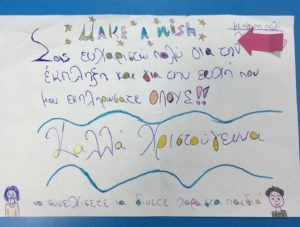 MAKE A WISH
Σας ευχαριστώ πολύ για την
έκπληξη και για την ευχή που
μου εκπληρώσατε ΟΛΟΥΣ!!
Καλλά Χριστούγεννα
να συνεχίσετε να δίνετε χαρά στα παιδιά